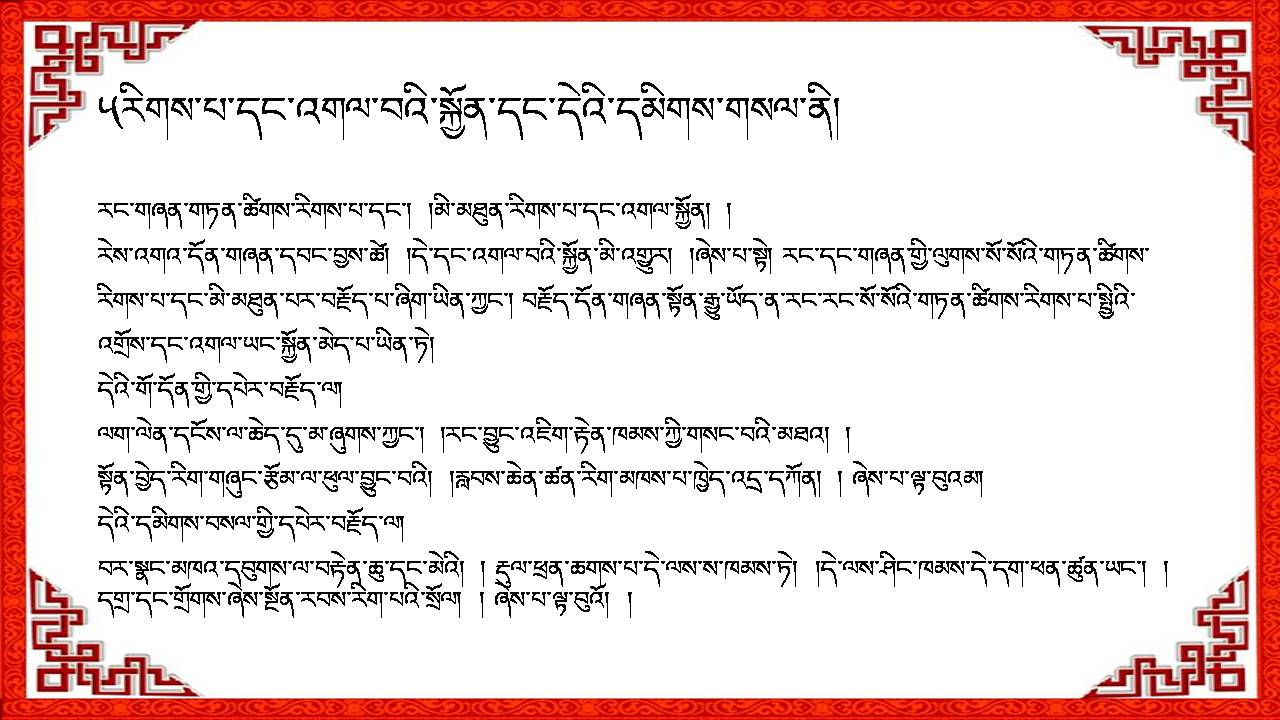 ༥རིགས་པ་དང་འགལ་བའི་སྐྱོན་དང་དེའི་དམིགས་གསལ་ནི།
རང་གཞན་གཏན་ཚིགས་རིགས་པ་དང་། །མི་མཐུན་རིགས་པ་དང་འགལ་སྐྱོན། །
རེས་འགའ་དོན་གཞན་དབང་བྱས་ཚེ། །དེ་དང་འགལ་བའི་སྐྱོན་མི་འགྱུར། །ཞེས་པ་སྟེ། རང་དང་གཞན་གྱི་ལུགས་སོ་སོའི་གཏན་ཚིགས་
རིགས་པ་དང་མི་མཐུན་པར་བརྗོད་པ་ཞིག་ཡིན་ཀྱང་། བརྗོད་དོན་གཞན་སྟོན་རྒྱུ་ཡོད་ན་རང་རང་སོ་སོའི་གཏན་ཚིགས་རིགས་པ་སྤྱིའི་
འགྲོས་དང་འགལ་ཡང་སྐྱོན་མེད་པ་ཡིན་ཏེ།
དེའི་གོ་དོན་གྱི་དཔེར་བརྗོད་ལ།
ལག་ལེན་དངོས་ལ་ཆེད་དུ་མ་ཞུགས་ཀྱང་། །རང་བྱུང་འཇིག་རྟེན་ཁམས་ཀྱི་གསང་བའི་མཐའ། །
སྟོན་བྱེད་རིག་གཞུང་རྩོམ་ལ་ཕུལ་བྱུང་བའི། །རླབས་ཆེན་ཚན་རིག་མཁས་པ་ཁྱེད་འདྲ་དཀོན། ། ཞེས་པ་ལྟ་བུའམ།
དེའི་དམིགས་བསལ་གྱི་དཔེར་བརྗོད་ལ།
བར་སྣང་མཁའ་དབུགས་ལ་བརྟེན་ཆུ་དང་མེའི། ། རྡུལ་ཕྲན་ཆགས་པ་དེ་ལས་ས་ཁམས་ཏེ། །དེ་ལས་ཤིང་ཁམས་དེ་དག་ཕན་ཚུན་ཡང་། །
དགྲ་དང་གྲོགས་ཞེས་སྔོན་རབས་རིག་པའི་སྲོལ། ། ཞེས་པ་ལྟ་བུའོ། །